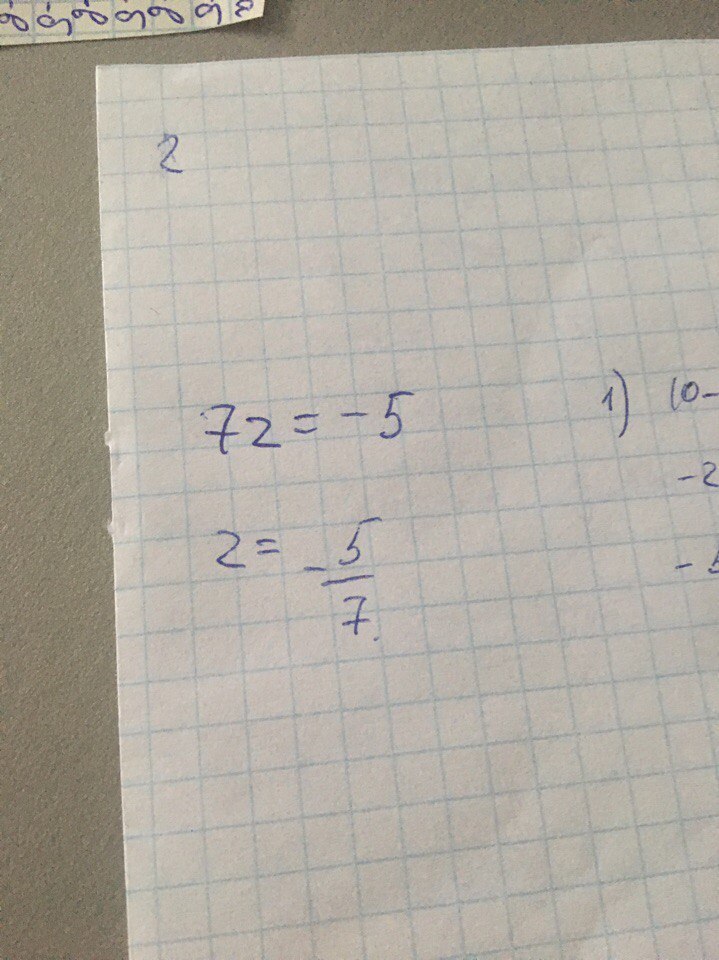 2
7z = -5
z = -5/7.
1) 10-
-2
-5